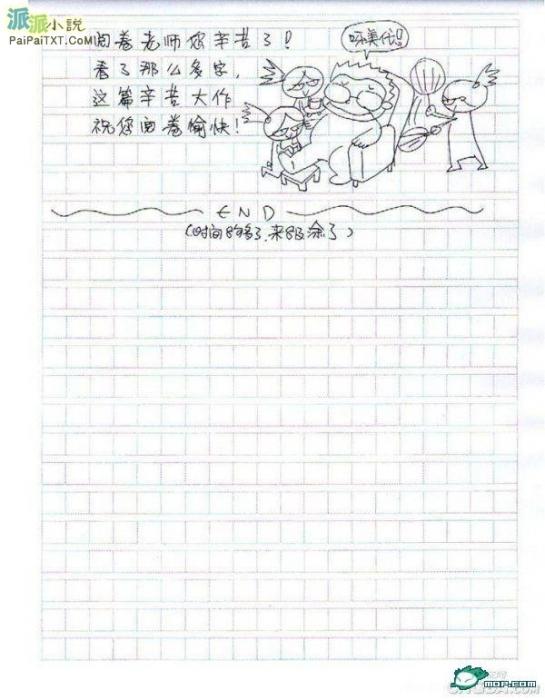 派派小說
PaiPaiTXT.CoM
阅卷老师您辛苦了!
看了那么多字,
这篇辛苦大作
祝您阅卷愉快!
END
(时间够了,来)
MOP.COM